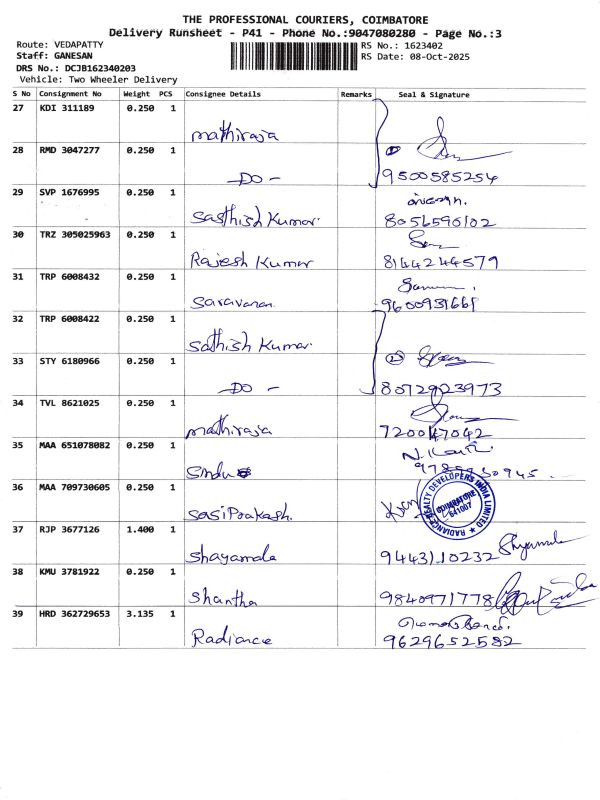 THE PROFESSIONAL COURIERS, COIMBATORE
Delivery Runsheet - P41 - Phone No.:9047080280 - Page No.:3
Route: VEDAPATTY
RS No.: 1623402
Staff: GANESAN
RS Date: 08-Oct-2025
DRS No.: DCJB162340203
Vehicle: Two Wheeler Delivery
S No Consignment No Weight PCS Consignee Details Remarks Seal & Signature
27 KDI 311189 0.250 1
mathiraja
28 RMD 3047277 0.250 1 ②
DO - 9500585254
29 SVP 1676995 0.250 1
Sasthish Kumar 8056590102
30 TRZ 305025963 0.250 1
Rajesh Kumar 8144244579
31 TRP 6008432 0.250 1
Saravanan 9600931661
32 TRP 6008422 0.250 1
Sathish Kumar
33 STY 6180966 0.250 1 ②
DO - 8072923973
34 TVL 8621025 0.250 1
mathiraja 7200147042
35 MAA 651078082 0.250 1
Sindu
36 MAA 709730605 0.250 1
SasiPrakash.
RADIANCE REALTY DEVELOPERS INDIA LIMITED
COIMBATORE
641007
37 RJP 3677126 1.400 1 Shyamala
Shayamala 9443110232
38 KMU 3781922 0.250 1
Shantha 9840971778
39 HRD 362729653 3.135 1
Radiance 9629652582